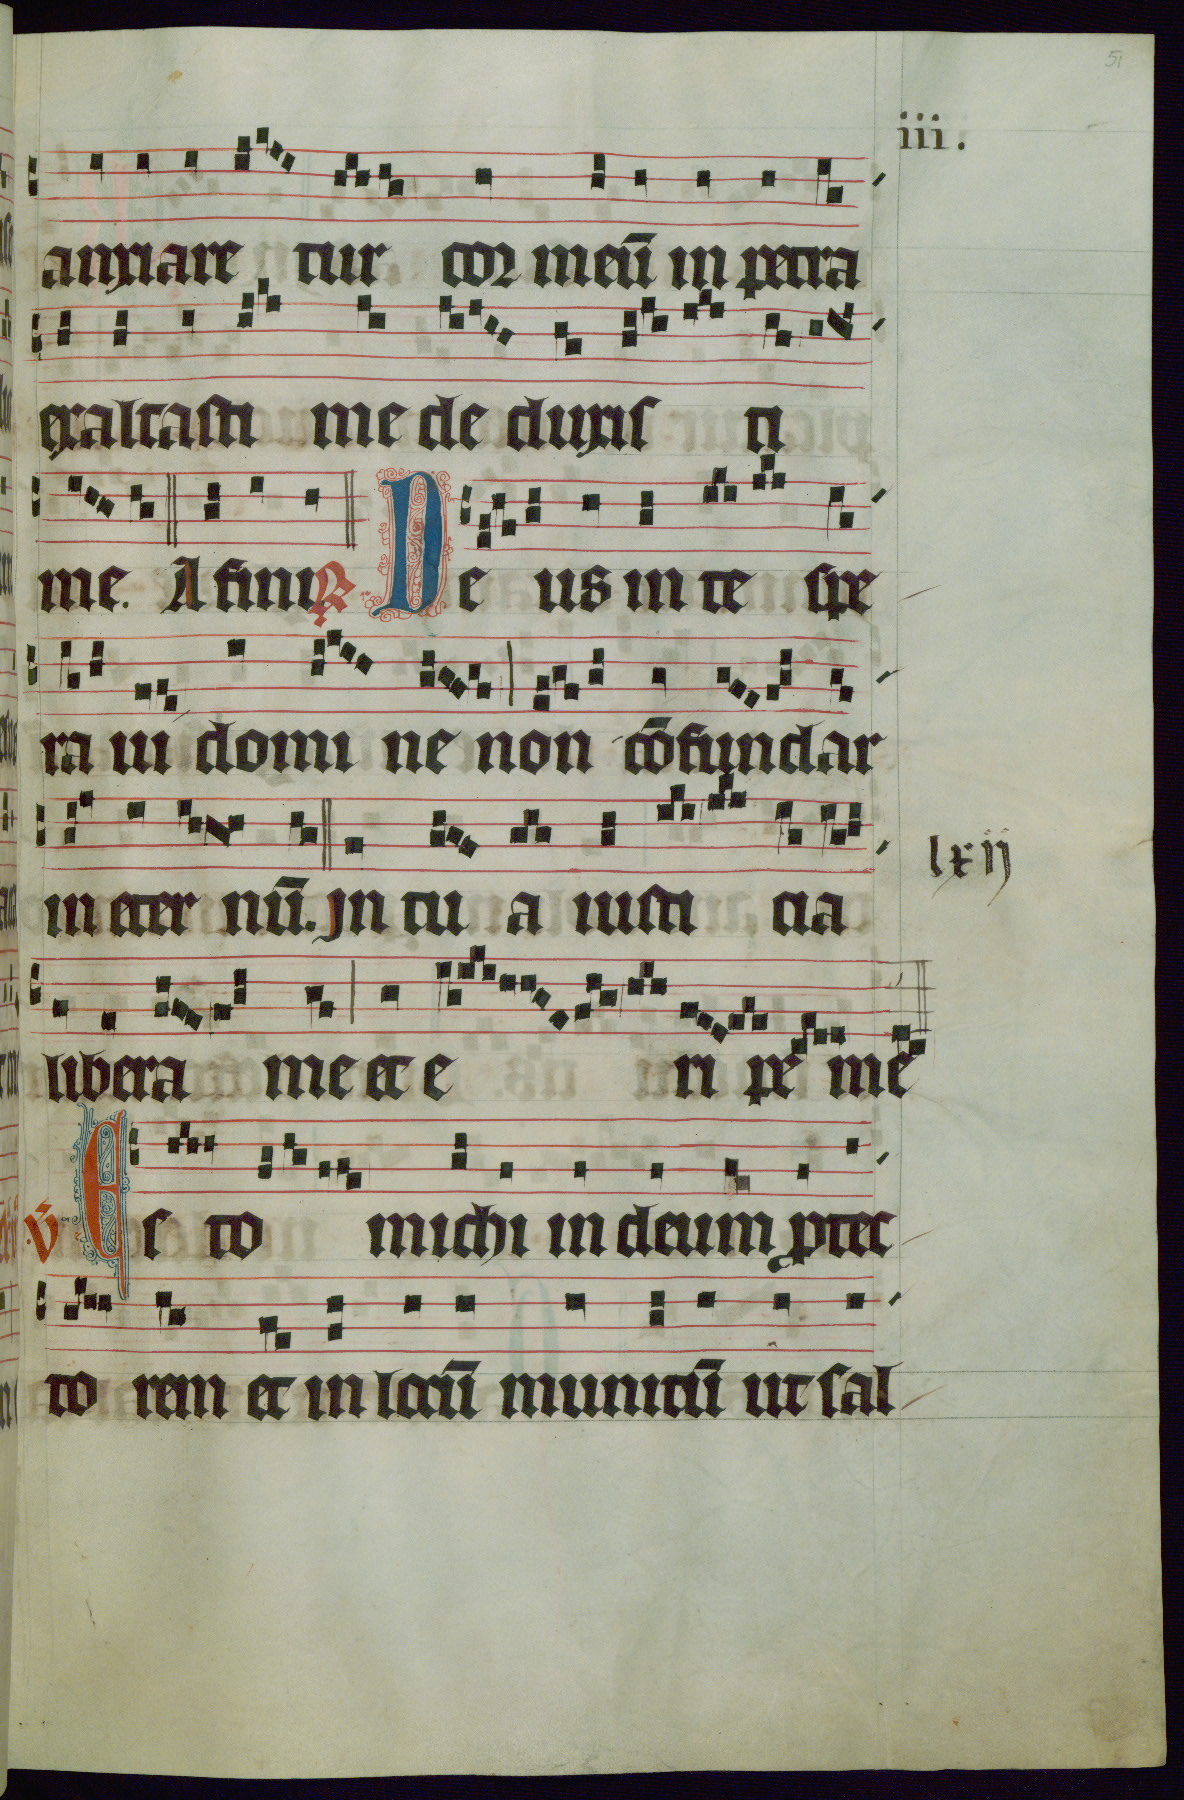 51
iii.
anxiare tur cor meū in petra
exaltasti me de duxis ti
me. A fini ℟ De us in te spe
ra ui domi ne non cōfundar
in eter nū. In tu a iusti cia
lxij
libera me et e ri pe me
℣ Es to michi in deum ptec
to rem et in locū munitū ut sal